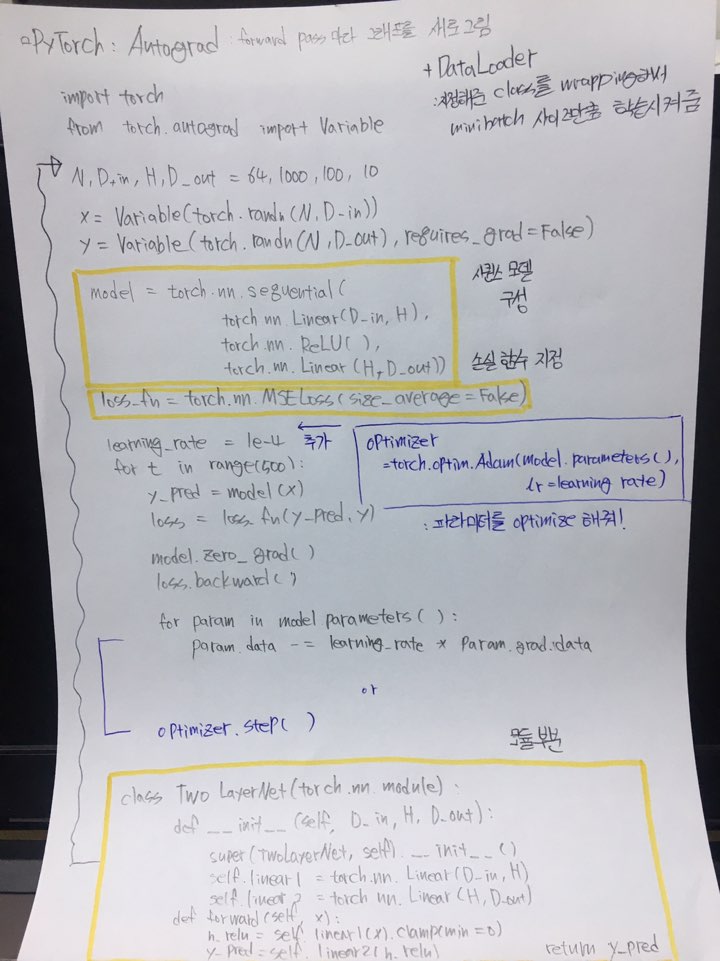 □PyTorch: Autograd : forward pass 마다 그래프를 새로 그림
+ DataLoader
: 지정해준 class를 wrapping해서
minibatch 사이즈만큼 학습시켜줌
import torch
from torch.autograd import Variable
N, D_in, H, D_out = 64, 1000, 100, 10
x = Variable(torch.randn(N, D-in))
y = Variable(torch.randn(N, D_out), requires_grad=False)
model = torch.nn.sequential(
torch.nn.Linear(D-in, H),
torch.nn.ReLU( ),
torch.nn.Linear(H, D_out))
시퀀스 모델
구성
손실 함수 지정
loss_fn = torch.nn.MSELoss(size_average=False)
learning_rate = 1e-4
추가
optimizer
=torch.optim.Adam(model.parameters(),
lr=learning rate)
: 파라미터를 optimize 해줘!
for t in range(500):
y_pred = model(x)
loss = loss_fn(y_pred, y)
model.zero_grad( )
loss.backward( )
for param in model parameters( ):
param.data -= learning_rate * param.grad.data
or
optimizer.step( )
모듈 부분
class Two LayerNet(torch.nn.module):
def __init__(self, D_in, H, D_out):
super(TwoLayerNet, self).__init__()
self.linear1 = torch.nn.Linear(D_in, H)
self.linear2 = torch nn.Linear(H, D_out)
def forward(self, x):
h_relu = self.linear1(x).clamp(min=0)
y_pred = self.linear2(h_relu)
return y_pred